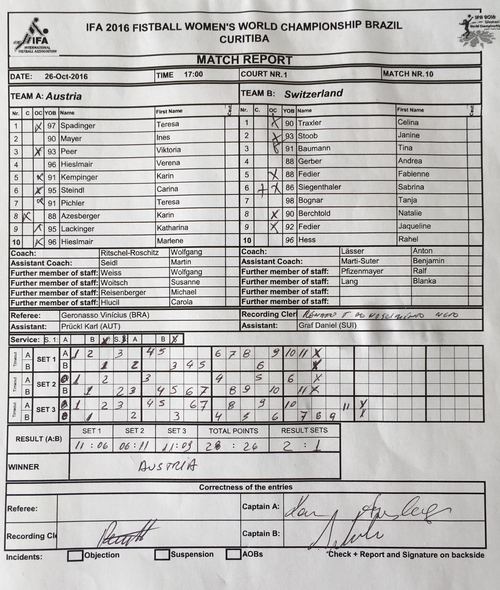 IFA
INTERNATIONAL
FISTBALL ASSOCIATION
IFA 2016 FISTBALL WOMEN'S WORLD CHAMPIONSHIP BRAZIL
CURITIBA
MATCH REPORT
DATE: 26-Oct-2016 TIME 17:00 COURT NR.1 MATCH NR.10
TEAM A: Austria TEAM B: Switzerland
Nr. C OC YOB Name First Name Nr. C. OC YOB Name First Name
1 X 97 Spadinger Teresa 1 X 90 Traxler Celina
2 90 Mayer Ines 2 X 93 Stoob Janine
3 X 93 Peer Viktoria 3 91 Baumann Tina
4 96 Hieslmair Verena 4 88 Gerber Andrea
5 X 91 Kempinger Karin 5 X 88 Fedier Fabienne
6 X 95 Steindl Carina 6 X X 86 Siegenthaler Sabrina
7 X 91 Pichler Teresa 7 98 Bognar Tanja
8 X 88 Azesberger Karin 8 X 90 Berchtold Natalie
9 X 95 Lackinger Katharina 9 X 92 Fedier Jaqueline
10 X 96 Hieslmair Marlene 10 96 Hess Rahel
Coach: Ritschel-Roschitz Wolfgang Coach: Lässer Anton
Assistant Coach: Seidl Martin Assistant Coach: Marti-Suter Benjamin
Further member of staff: Weiss Wolfgang Further member of staff: Pfizenmayer Ralf
Further member of staff: Woitsch Susanne Further member of staff: Lang Blanka
Further member of staff: Reisenberger Michael Further member of staff:
Further member of staff: Hlucil Carola Further member of staff:
Referee: Geronasso Vinícius (BRA) Recording Cler
Assistant: Prückl Karl (AUT) Assistant: Graf Daniel (SUI)
Service: S. 1: A B S.3: A B
A SET 1 A 1 2 3 4 5 6 7 8 9 10 11 X
B B 1 2 3 4 5 6 X
A SET 2 A 1 2 3 4 5 6 X
B B 1 2 3 4 5 6 7 8 9 10 11 X
A SET 3 A 1 2 3 4 5 6 7 8 9 10 11 X
B B 1 2 3 4 5 6 7 8 9 X
SET 1 SET 2 SET 3 TOTAL POINTS RESULT SETS
RESULT (A:B) 11 : 06 06 : 11 11 : 09 28 : 26 2 : 1
WINNER AUSTRIA
Correctness of the entries
Referee: Captain A:
Recording Cle Captain B:
Incidents: Objection Suspension AOBs *Check + Report and Signature on backside